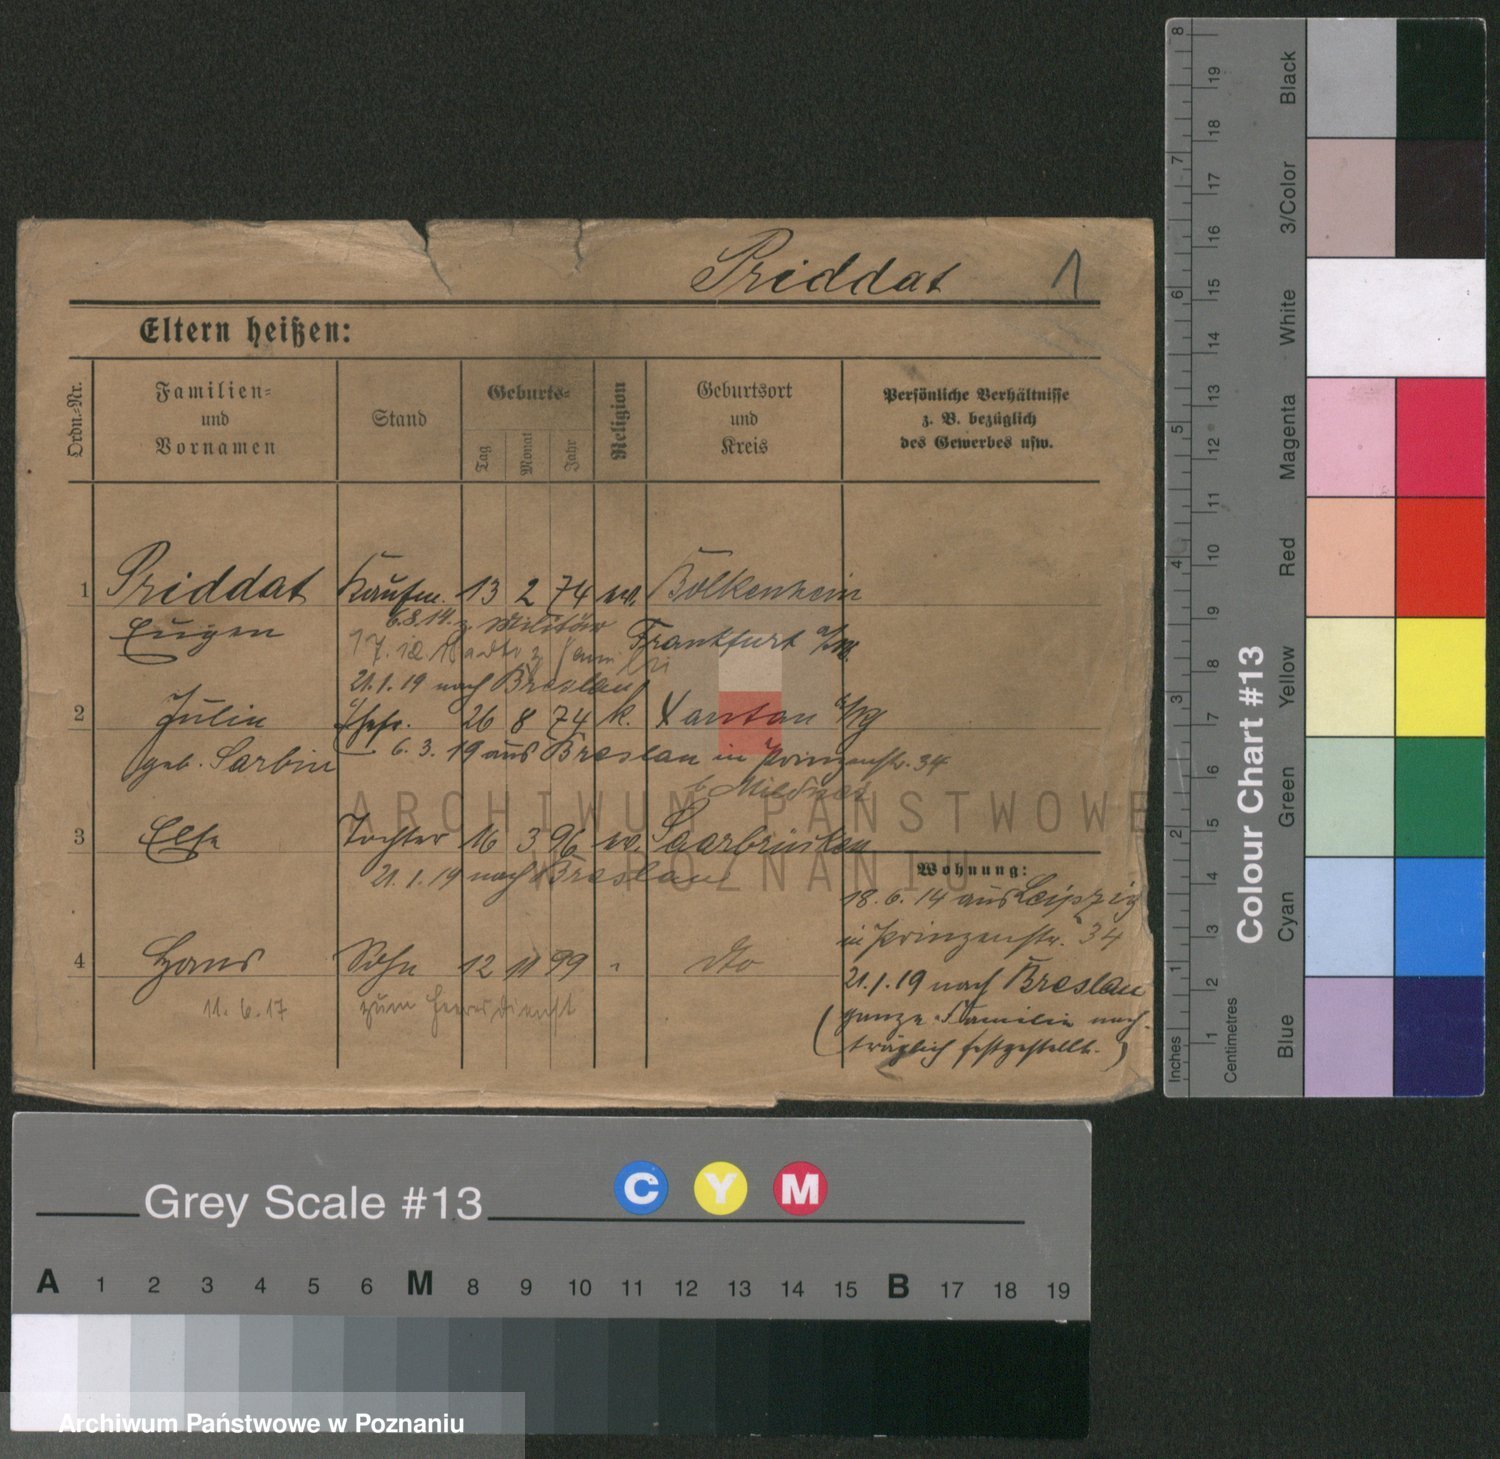 Priddat 1
Eltern heißen:
Ordn.-Nr.
Familien-
und
Vornamen
Stand
Geburts-
Tag
Monat
Jahr
Religion
Geburtsort
und
Kreis
Persönliche Verhältnisse
z. B. bezüglich
des Gewerbes usw.
1 Priddat Kaufm. 13 2 74 ev. Bolkenhein
Eugen 6.8.14. z. Militär Frankfurt a/M.
17.12.18
21.1.19 nach Breslau
2 Julie Ehefr. 26 8 74 k. Xantan
geb. Sarbin 6. 3. 19 aus Breslau in Prinzenstr. 34
b.
3 Else Tochter 16 3 96 ev. Saarbrücken
21. 1. 19 nach Breslau
Wohnung:
18. 6. 14 aus Leipzig
in Prinzenstr. 34
4 Hans Sohn 12 11 99 " dto
21.1.19 nach Breslau
11. 6. 17 zum Heeresdienst
(ganze Familie nach-
träglich festgestellt.)
ARCHIWUM PAŃSTWOWE
W POZNANIU
Archiwum Państwowe w Poznaniu
Grey Scale #13
C Y M
A 1 2 3 4 5 6 M 8 9 10 11 12 13 14 15 B 17 18 19
Colour Chart #13
Blue Cyan Green Yellow Red Magenta White 3/Color Black
Inches 1 2 3 4 5 6 7 8
Centimetres 1 2 3 4 5 6 7 8 9 10 11 12 13 14 15 16 17 18 19